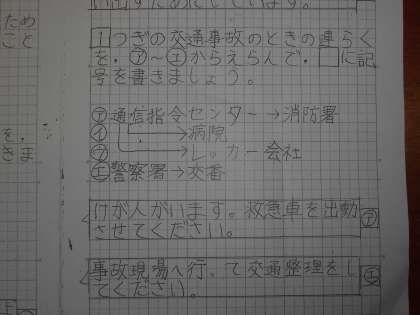 い出すためにしています。
1つぎの交通事故のときの連らく
を、㋐〜㋓からえらんで、□に記
号を書きましょう。
㋐通信指令センター→消防署
㋑→病院
㋒→レッカー会社
㋓警察署→交番
けが人がいます。救急車を出動
させてください。
事故現場へ行って交通整理をし
てください。
ため
こと
を、
きま